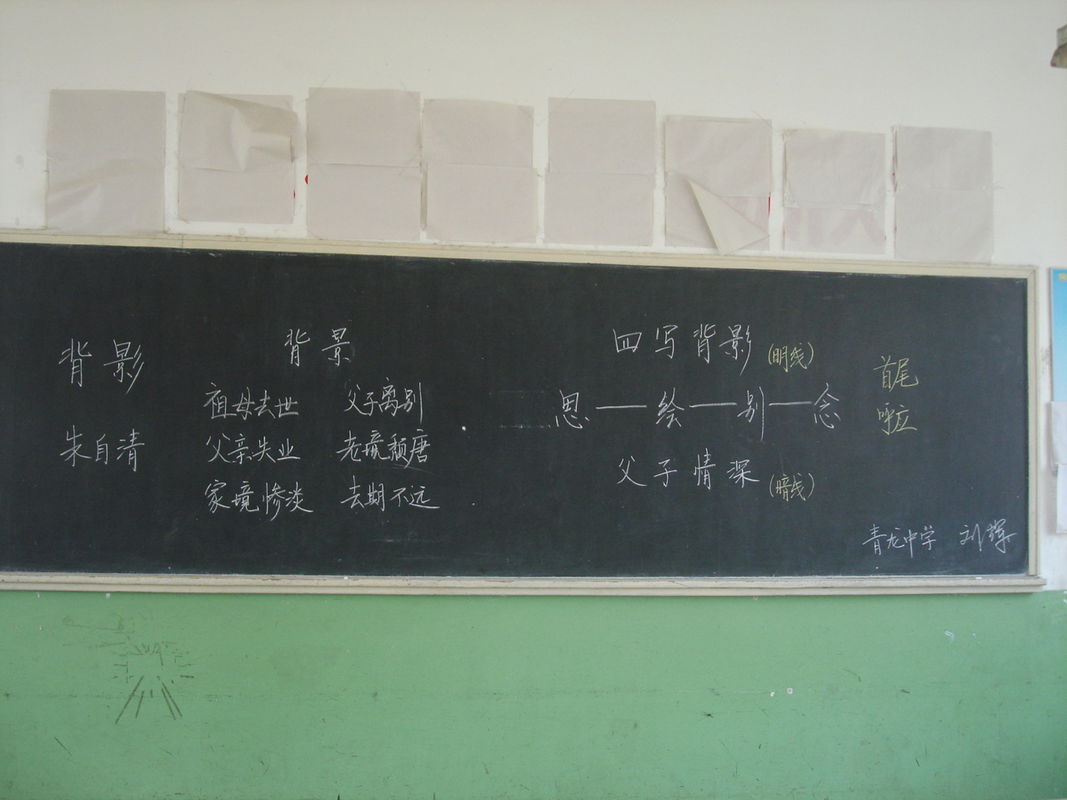 背影
朱自清
背景
祖母去世 父子离别
父亲失业 老境颓唐
家境惨淡 去期不远
四写背影 (明线)
思——绘——别——念
父子情深 (暗线)
首尾
呼应
青龙中学 刘辉